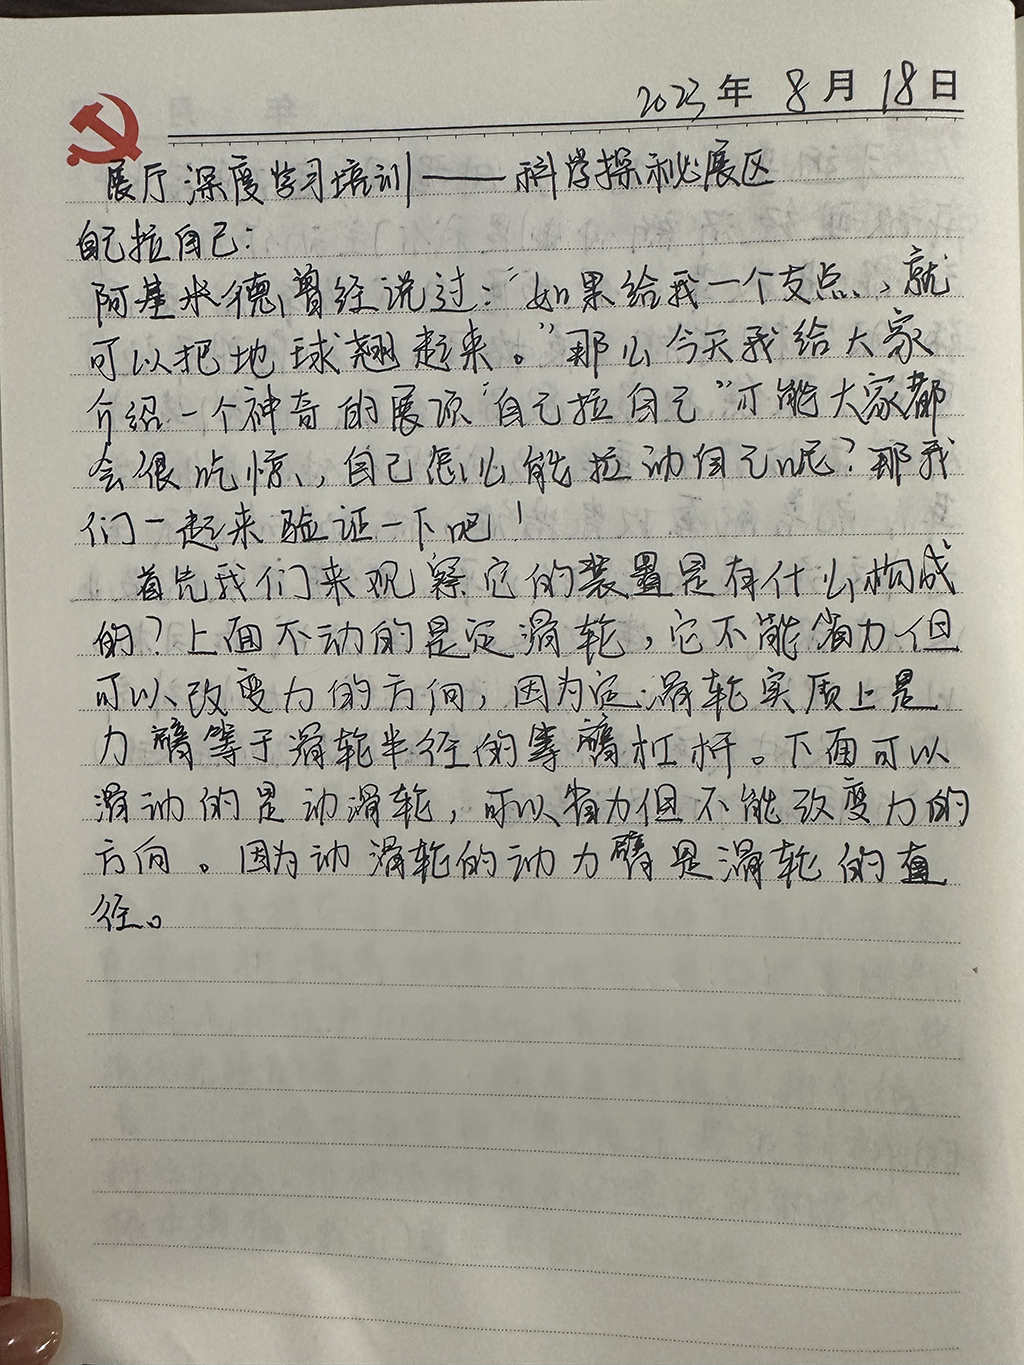 2023年 8月 18日
展厅深度学习培训——科学探秘展区
自己拉自己：
阿基米德曾经说过：“如果给我一个支点，就
可以把地球翘起来。”那么今天我给大家
介绍一个神奇的展项“自己拉自己”可能大家都
会很吃惊，自己怎么能拉动自己呢？那我
们一起来验证一下吧！
首先我们来观察它的装置是有什么构成
的？上面不动的是定滑轮，它不能省力但
可以改变力的方向，因为定滑轮实质上是
力臂等于滑轮半径的等臂杠杆。下面可以
滑动的是动滑轮，可以省力但不能改变力的
方向。因为动滑轮的动力臂是滑轮的直
径。